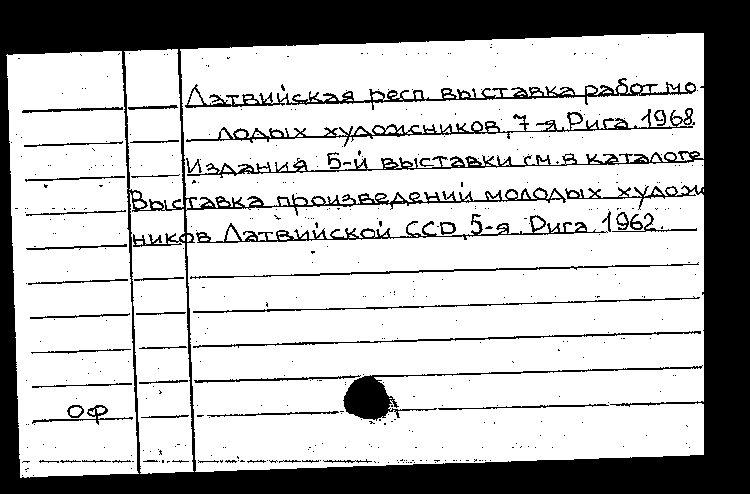 Латвийская респ. выставка работ мо-
лодых художников, 7-я. Рига. 1968
Издания 5-й выставки см. в каталоге
Выставка произведений молодых худож
ников Латвийской ССР, 5-я. Рига. 1962.
ОФ